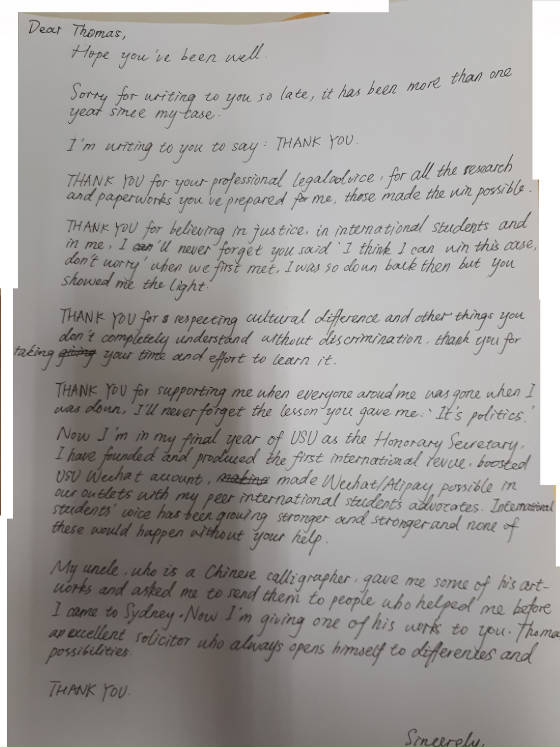 Dear Thomas,
Hope you've been well.
Sorry for writing to you so late, it has been more than one
year since my case.
I'm writing to you to say: THANK YOU.
THANK YOU for your professional legal advice, for all the research
and paperworks you've prepared for me, those made the win possible.
THANK YOU for believing in justice, in international students and
in me, I can'll never forget you said 'I think I can win this case,
don't worry' when we first met, I was so down back then but you
showed me the light.
THANK YOU for s respecting cultural difference and other things you
don't completely understand without discrimination, thank you for
taking giving your time and effort to learn it.
THANK YOU for supporting me when everyone aroud me was gone when I
was down, I'll never forget the lesson you gave me: 'It's politics.'
Now I'm in my final year of USU as the Honorary Secretary,
I have founded and produced the first international revue, boosted
USU Wechat acount, making made Wechat/Alipay possible in
our outlets with my peer international students advocates. International
students' voice has been growing stronger and stronger and none of
these would happen without your help.
My uncle, who is a Chinese calligrapher, gave me some of his art-
works and asked me to send them to people who helped me before
I came to Sydney. Now I'm giving one of his works to you, Thomas
an excellent solicitor who always opens himself to differences and
possibilities.
THANK YOU.
Sincerely,